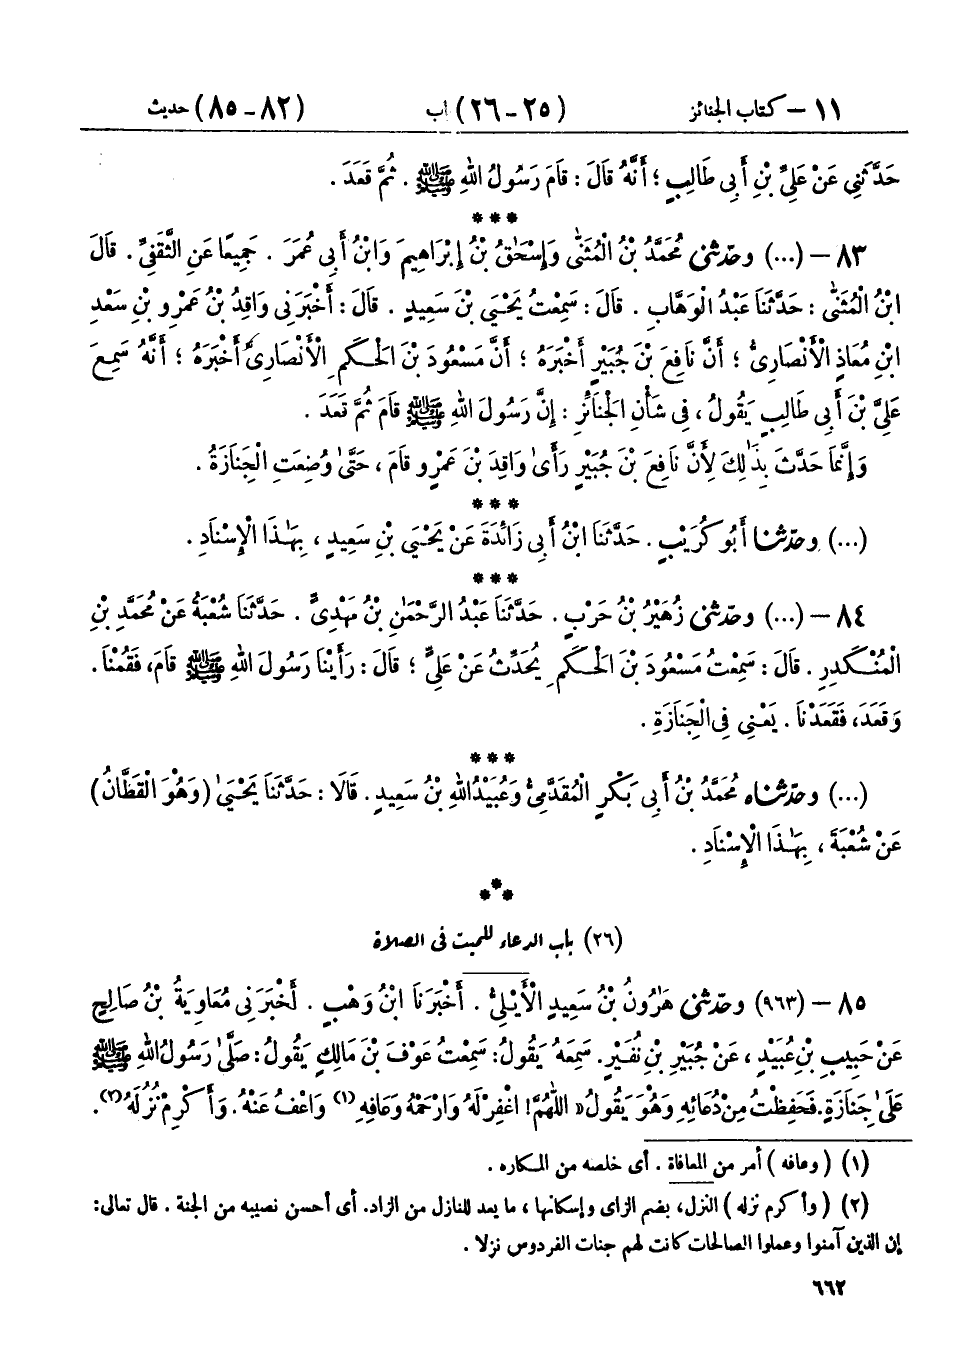 ١١ – كتاب الجنائز (٢٥ - ٢٦) اب (٨٢ - ٨٥) حديث
حَدَّثَنِي عَنْ عَلِيِّ بْنِ أَبِي طَالِبٍ ؛ أَنَّهُ قَالَ : قَامَ رَسُولُ اللهِ ﷺ . ثُمَّ قَعَدَ .
***
٨٣ – (...) وحدثني مُحَمَّدُ بْنُ الْمُثَنَّىٰ وَإِسْحَٰقُ بْنُ إِبْرَاهِيمَ وَابْنُ أَبِي عُمَرَ . جَمِيعًا عَنِ الثَّقَفِيِّ . قَالَ
ابْنُ الْمُثَنَّىٰ : حَدَّثَنَا عَبْدُ الْوَهَّابِ . قَالَ : سَمِعْتُ يَحْيَىٰ بْنَ سَعِيدٍ . قَالَ : أَخْبَرَنِي وَاقِدُ بْنُ عَمْرِو بْنِ سَعْدِ
ابْنِ مُعَاذٍ الْأَنْصَارِيُّ ؛ أَنَّ نَافِعَ بْنَ جُبَيْرٍ أَخْبَرَهُ ؛ أَنَّ مَسْعُودَ بْنَ الْحَكَمِ الْأَنْصَارِيَّ أَخْبَرَهُ ؛ أَنَّهُ سَمِعَ
عَلِيَّ بْنَ أَبِي طَالِبٍ يَقُولُ ، فِي شَأْنِ الْجَنَائِزِ : إِنَّ رَسُولَ اللهِ ﷺ قَامَ ثُمَّ قَعَدَ .
وَإِنَّمَا حَدَّثَ بِذَٰلِكَ لِأَنَّ نَافِعَ بْنَ جُبَيْرٍ رَأَىٰ وَاقِدَ بْنَ عَمْرٍو قَامَ ، حَتَّىٰ وُضِعَتِ الْجَنَازَةُ .
***
(...) وحدثنا أَبُو كُرَيْبٍ . حَدَّثَنَا ابْنُ أَبِي زَائِدَةَ عَنْ يَحْيَىٰ بْنِ سَعِيدٍ ، بِهَٰذَا الْإِسْنَادِ .
***
٨٤ – (...) وحدثني زُهَيْرُ بْنُ حَرْبٍ . حَدَّثَنَا عَبْدُ الرَّحْمَٰنِ بْنُ مَهْدِيٍّ . حَدَّثَنَا شُعْبَةُ عَنْ مُحَمَّدِ بْنِ
الْمُنْكَدِرِ . قَالَ : سَمِعْتُ مَسْعُودَ بْنَ الْحَكَمِ يُحَدِّثُ عَنْ عَلِيٍّ ؛ قَالَ : رَأَيْنَا رَسُولَ اللهِ ﷺ قَامَ، فَقُمْنَا .
وَقَعَدَ، فَقَعَدْنَا . يَعْنِي فِي الْجَنَازَةِ .
***
(...) وحدثناه مُحَمَّدُ بْنُ أَبِي بَكْرٍ الْمُقَدَّمِيُّ وَعُبَيْدُ اللهِ بْنُ سَعِيدٍ . قَالَا : حَدَّثَنَا يَحْيَىٰ (وَهُوَ الْقَطَّانُ)
عَنْ شُعْبَةَ ، بِهَٰذَا الْإِسْنَادِ .
***
(٢٦) باب الدعاء للميت فى الصلاة
٨٥ – (٩٦٣) وحدثني هَٰرُونُ بْنُ سَعِيدٍ الْأَيْلِيُّ . أَخْبَرَنَا ابْنُ وَهْبٍ . أَخْبَرَنِي مُعَاوِيَةُ بْنُ صَالِحٍ
عَنْ حَبِيبِ بْنِ عُبَيْدٍ ، عَنْ جُبَيْرِ بْنِ نُفَيْرٍ. سَمِعَهُ يَقُولُ: سَمِعْتُ عَوْفَ بْنَ مَالِكٍ يَقُولُ : صَلَّىٰ رَسُولُ اللهِ ﷺ
عَلَىٰ جِنَازَةٍ. فَحَفِظْتُ مِنْ دُعَائِهِ وَهُوَ يَقُولُ « اللَّهُمَّ ! اغْفِرْ لَهُ وَارْحَمْهُ وَعَافِهِ (١) وَاعْفُ عَنْهُ. وَأَكْرِمْ نُزُلَهُ (٢).
(١) ( وعافه ) أمر من المعافاة . أى خلصه من المكاره .
(٢) ( وأكرم نزله ) النزل، بضم الزاى وإسكانها ، ما يعد للنازل من الزاد. أى أحسن نصيبه من الجنة . قال تعالى:
إن الذين آمنوا وعملوا الصالحات كانت لهم جنات الفردوس نزلا .
٦٦٢